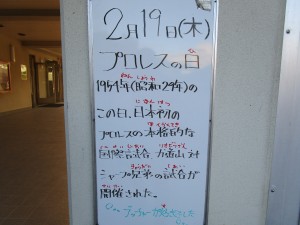 2月19日(木)
プロレスの日
1954年(昭和29年)の
この日、日本初の
プロレスの本格的な
国際試合 力道山 対
シャープ兄弟の試合が
開催された。